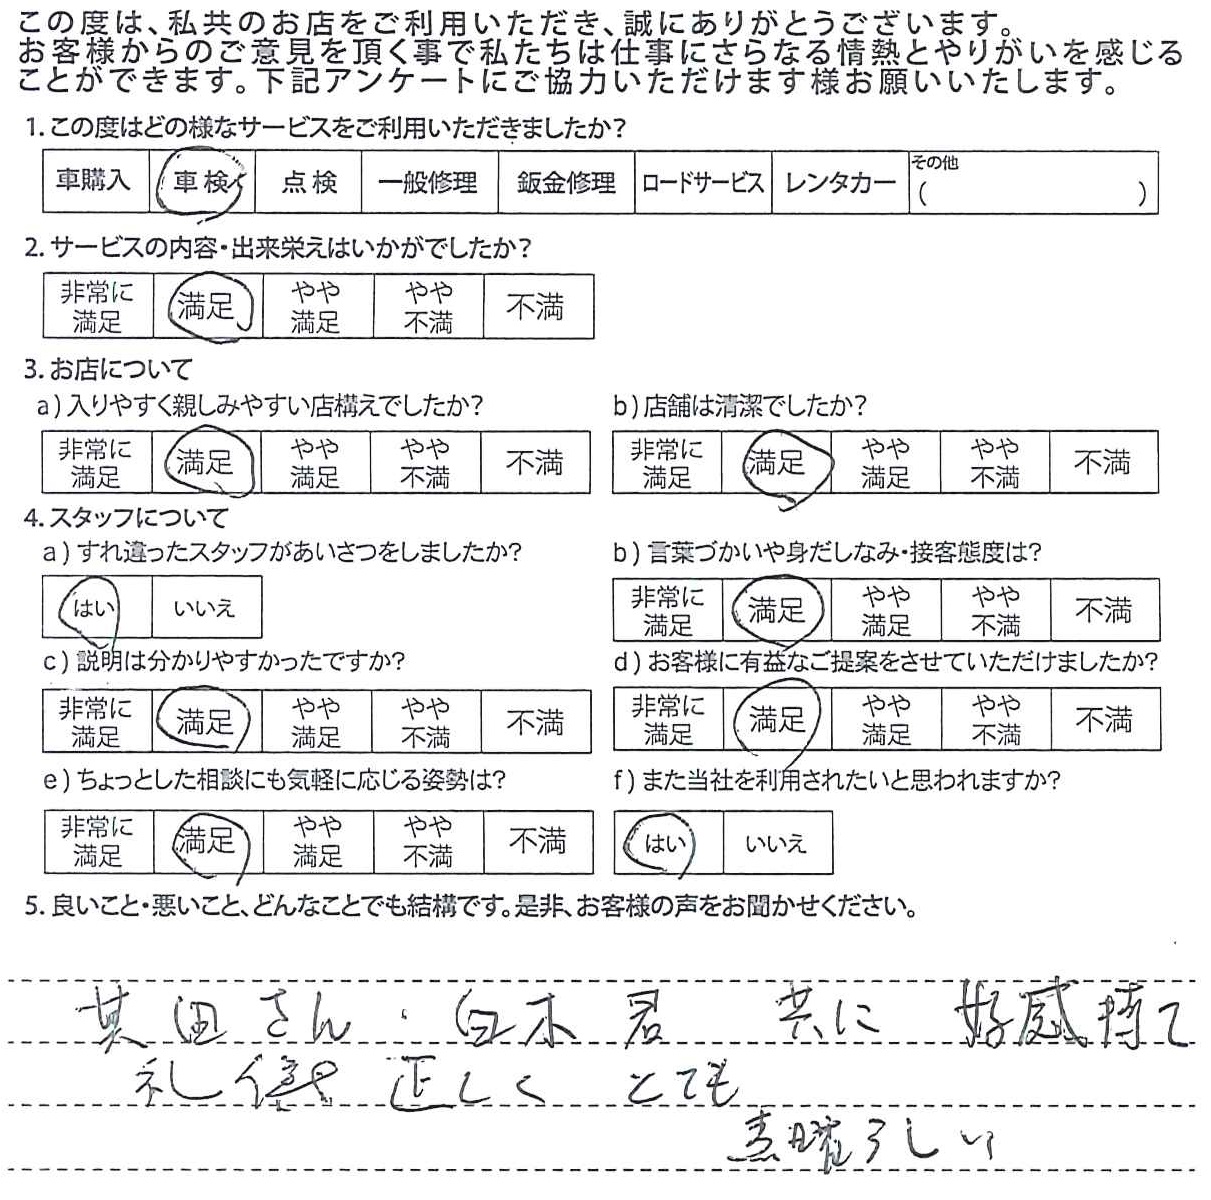 この度は、私共のお店をご利用いただき、誠にありがとうございます。
お客様からのご意見を頂く事で私たちは仕事にさらなる情熱とやりがいを感じる
ことができます。下記アンケートにご協力いただけます様お願いいたします。
1.この度はどの様なサービスをご利用いただきましたか?
車購入 車検 点検 一般修理 鈑金修理 ロードサービス レンタカー その他 ( )
2.サービスの内容・出来栄えはいかがでしたか?
非常に満足 満足 やや満足 やや不満 不満
3.お店について
a)入りやすく親しみやすい店構えでしたか?
非常に満足 満足 やや満足 やや不満 不満
b)店舗は清潔でしたか?
非常に満足 満足 やや満足 やや不満 不満
4.スタッフについて
a)すれ違ったスタッフがあいさつをしましたか?
はい いいえ
b)言葉づかいや身だしなみ・接客態度は?
非常に満足 満足 やや満足 やや不満 不満
c)説明は分かりやすかったですか?
非常に満足 満足 やや満足 やや不満 不満
d)お客様に有益なご提案をさせていただけましたか?
非常に満足 満足 やや満足 やや不満 不満
e)ちょっとした相談にも気軽に応じる姿勢は?
非常に満足 満足 やや満足 やや不満 不満
f)また当社を利用されたいと思われますか?
はい いいえ
5.良いこと・悪いこと、どんなことでも結構です。是非、お客様の声をお聞かせください。
さん・白木君 共に 好感持て
礼儀正しく とても
素曜らしい